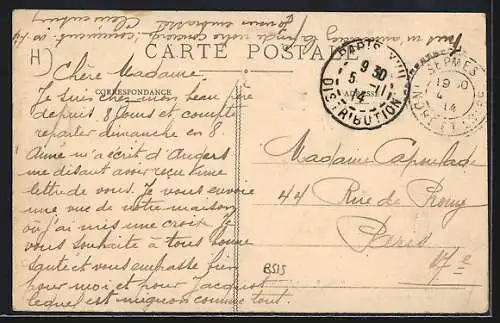 H)
CARTE POSTALE
CORRESPONDANCE
ADRESSE
Chère Madame.
Je suis chez mon beau père
depuis 8 jours et compte
repartir dimanche en 8
Anne m'a écrit d'Angers
me disant avoir reçu une
lettre de vous. Je vous envoie
une vue de notre maison
où j'ai mis une croix. Je
vous souhaite à tous bonne
santé et vous embrasse bien
pour moi et pour Jacquot
lequel est mignon comme tout.
PARIS XVII
9 30
5 11
14
DISTRIBUTION
SEPMES
19 30
4
14
INDRE-ET-LOIRE
Madame Capoulade
44 Rue de Prony
Paris
17e
BSIS